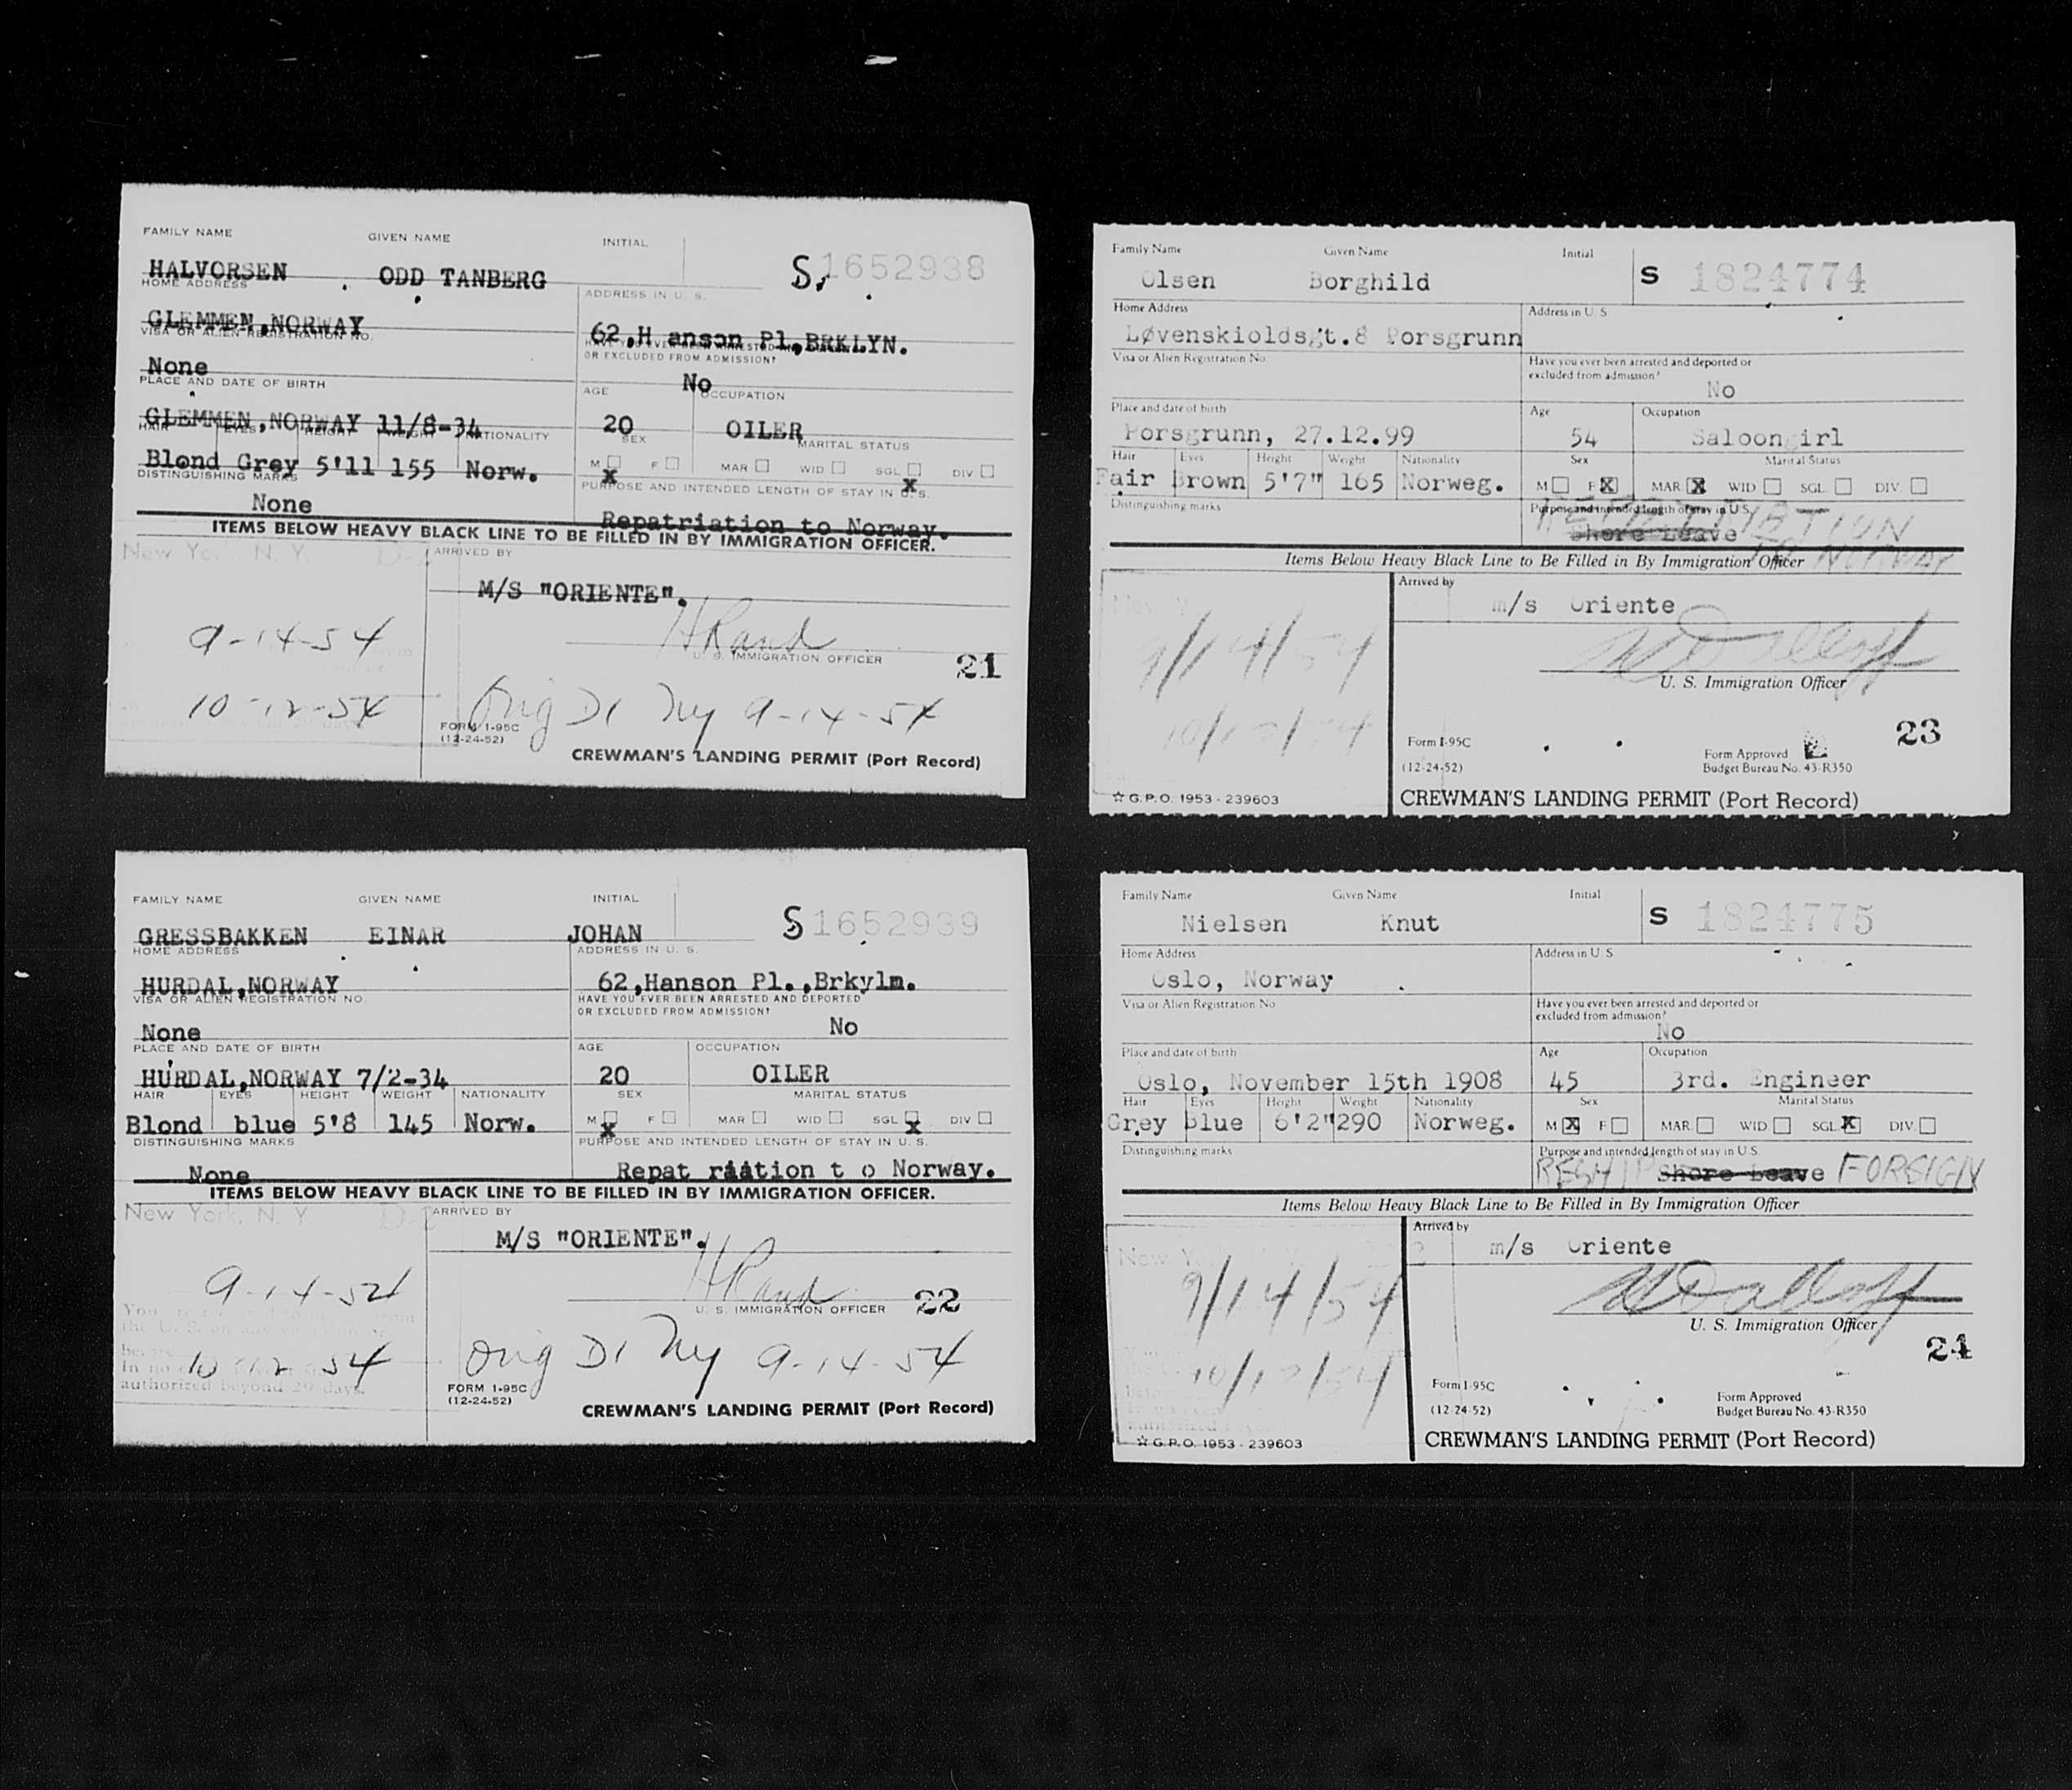 FAMILY NAME GIVEN NAME INITIAL
HALVORSEN ODD TANBERG S 1652938
HOME ADDRESS ADDRESS IN U. S.
GLEMMEN,NORWAY 62,H anson Pl,BRKLYN.
VISA OR ALIEN REGISTRATION NO.
OR EXCLUDED FROM ADMISSION?
None No
PLACE AND DATE OF BIRTH AGE OCCUPATION
GLEMMEN,NORWAY 11/8-34 20 OILER
HAIR EYES HEIGHT WEIGHT NATIONALITY SEX MARITAL STATUS
Blond Grey 5'11 155 Norw. M X F MAR WID SGL X DIV
DISTINGUISHING MARKS PURPOSE AND INTENDED LENGTH OF STAY IN U. S.
None Repatriation to Norway.
ITEMS BELOW HEAVY BLACK LINE TO BE FILLED IN BY IMMIGRATION OFFICER.
New York, N. Y. ARRIVED BY
M/S "ORIENTE".
9-14-54 HRand
U. S. IMMIGRATION OFFICER 21
10-12-54 Orig D1 Ny 9-14-54
FORM I-95C
(12-24-52)
CREWMAN'S LANDING PERMIT (Port Record)
Family Name Given Name Initial
Olsen Borghild S 1824774
Home Address Address in U. S
Løvenskioldsgt.8 Porsgrunn
Visa or Alien Registration No. Have you ever been arrested and deported or
excluded from admission?
No
Place and date of birth Age Occupation
Porsgrunn, 27.12.99 54 Saloongirl
Hair Eyes Height Weight Nationality Sex Marital Status
Fair Brown 5'7" 165 Norweg. M F X MAR. X WID SGL. DIV.
Distinguishing marks Purpose and intended length of stay in U.S.
REPATRIATION
Shore Leave TO NORWAY
Items Below Heavy Black Line to Be Filled in By Immigration Officer
Arrived by
m/s Oriente
9/14/54
U. S. Immigration Officer
23
Form I-95C Form Approved
(12-24-52) Budget Bureau No. 43-R350
☆ G.P.O. 1953 - 239603 CREWMAN'S LANDING PERMIT (Port Record)
FAMILY NAME GIVEN NAME INITIAL
GRESSBAKKEN EINAR JOHAN S 1652939
HOME ADDRESS ADDRESS IN U. S.
HURDAL,NORWAY 62,Hanson Pl.,Brkylm.
VISA OR ALIEN REGISTRATION NO. HAVE YOU EVER BEEN ARRESTED AND DEPORTED
OR EXCLUDED FROM ADMISSION?
None No
PLACE AND DATE OF BIRTH AGE OCCUPATION
HURDAL,NORWAY 7/2-34 20 OILER
HAIR EYES HEIGHT WEIGHT NATIONALITY SEX MARITAL STATUS
Blond blue 5'8 145 Norw. M X F MAR WID SGL X DIV
DISTINGUISHING MARKS PURPOSE AND INTENDED LENGTH OF STAY IN U. S.
None Repat riation t o Norway.
ITEMS BELOW HEAVY BLACK LINE TO BE FILLED IN BY IMMIGRATION OFFICER.
New York, N. Y. ARRIVED BY
M/S "ORIENTE".
9-14-54 HRand
U. S. IMMIGRATION OFFICER 22
10-12-54 Orig D1 Ny 9-14-54
authorized beyond 29 days.
FORM I-95C
(12-24-52)
CREWMAN'S LANDING PERMIT (Port Record)
Family Name Given Name Initial
Nielsen Knut S 1824775
Home Address Address in U. S
Oslo, Norway
Visa or Alien Registration No Have you ever been arrested and deported or
excluded from admission?
No
Place and date of birth Age Occupation
Oslo, November 15th 1908 45 3rd. Engineer
Hair Eyes Height Weight Nationality Sex Marital Status
Grey Blue 6'2" 290 Norweg. M X F MAR. WID. SGL. X DIV.
Distinguishing marks Purpose and intended length of stay in U.S.
RESHIP Shore Leave FOREIGN
Items Below Heavy Black Line to Be Filled in By Immigration Officer
Arrived by
m/s Oriente
9/14/54
U. S. Immigration Officer
24
Form I-95C Form Approved
(12-24-52) Budget Bureau No. 43-R350
☆ G.P.O. 1953 - 239603 CREWMAN'S LANDING PERMIT (Port Record)